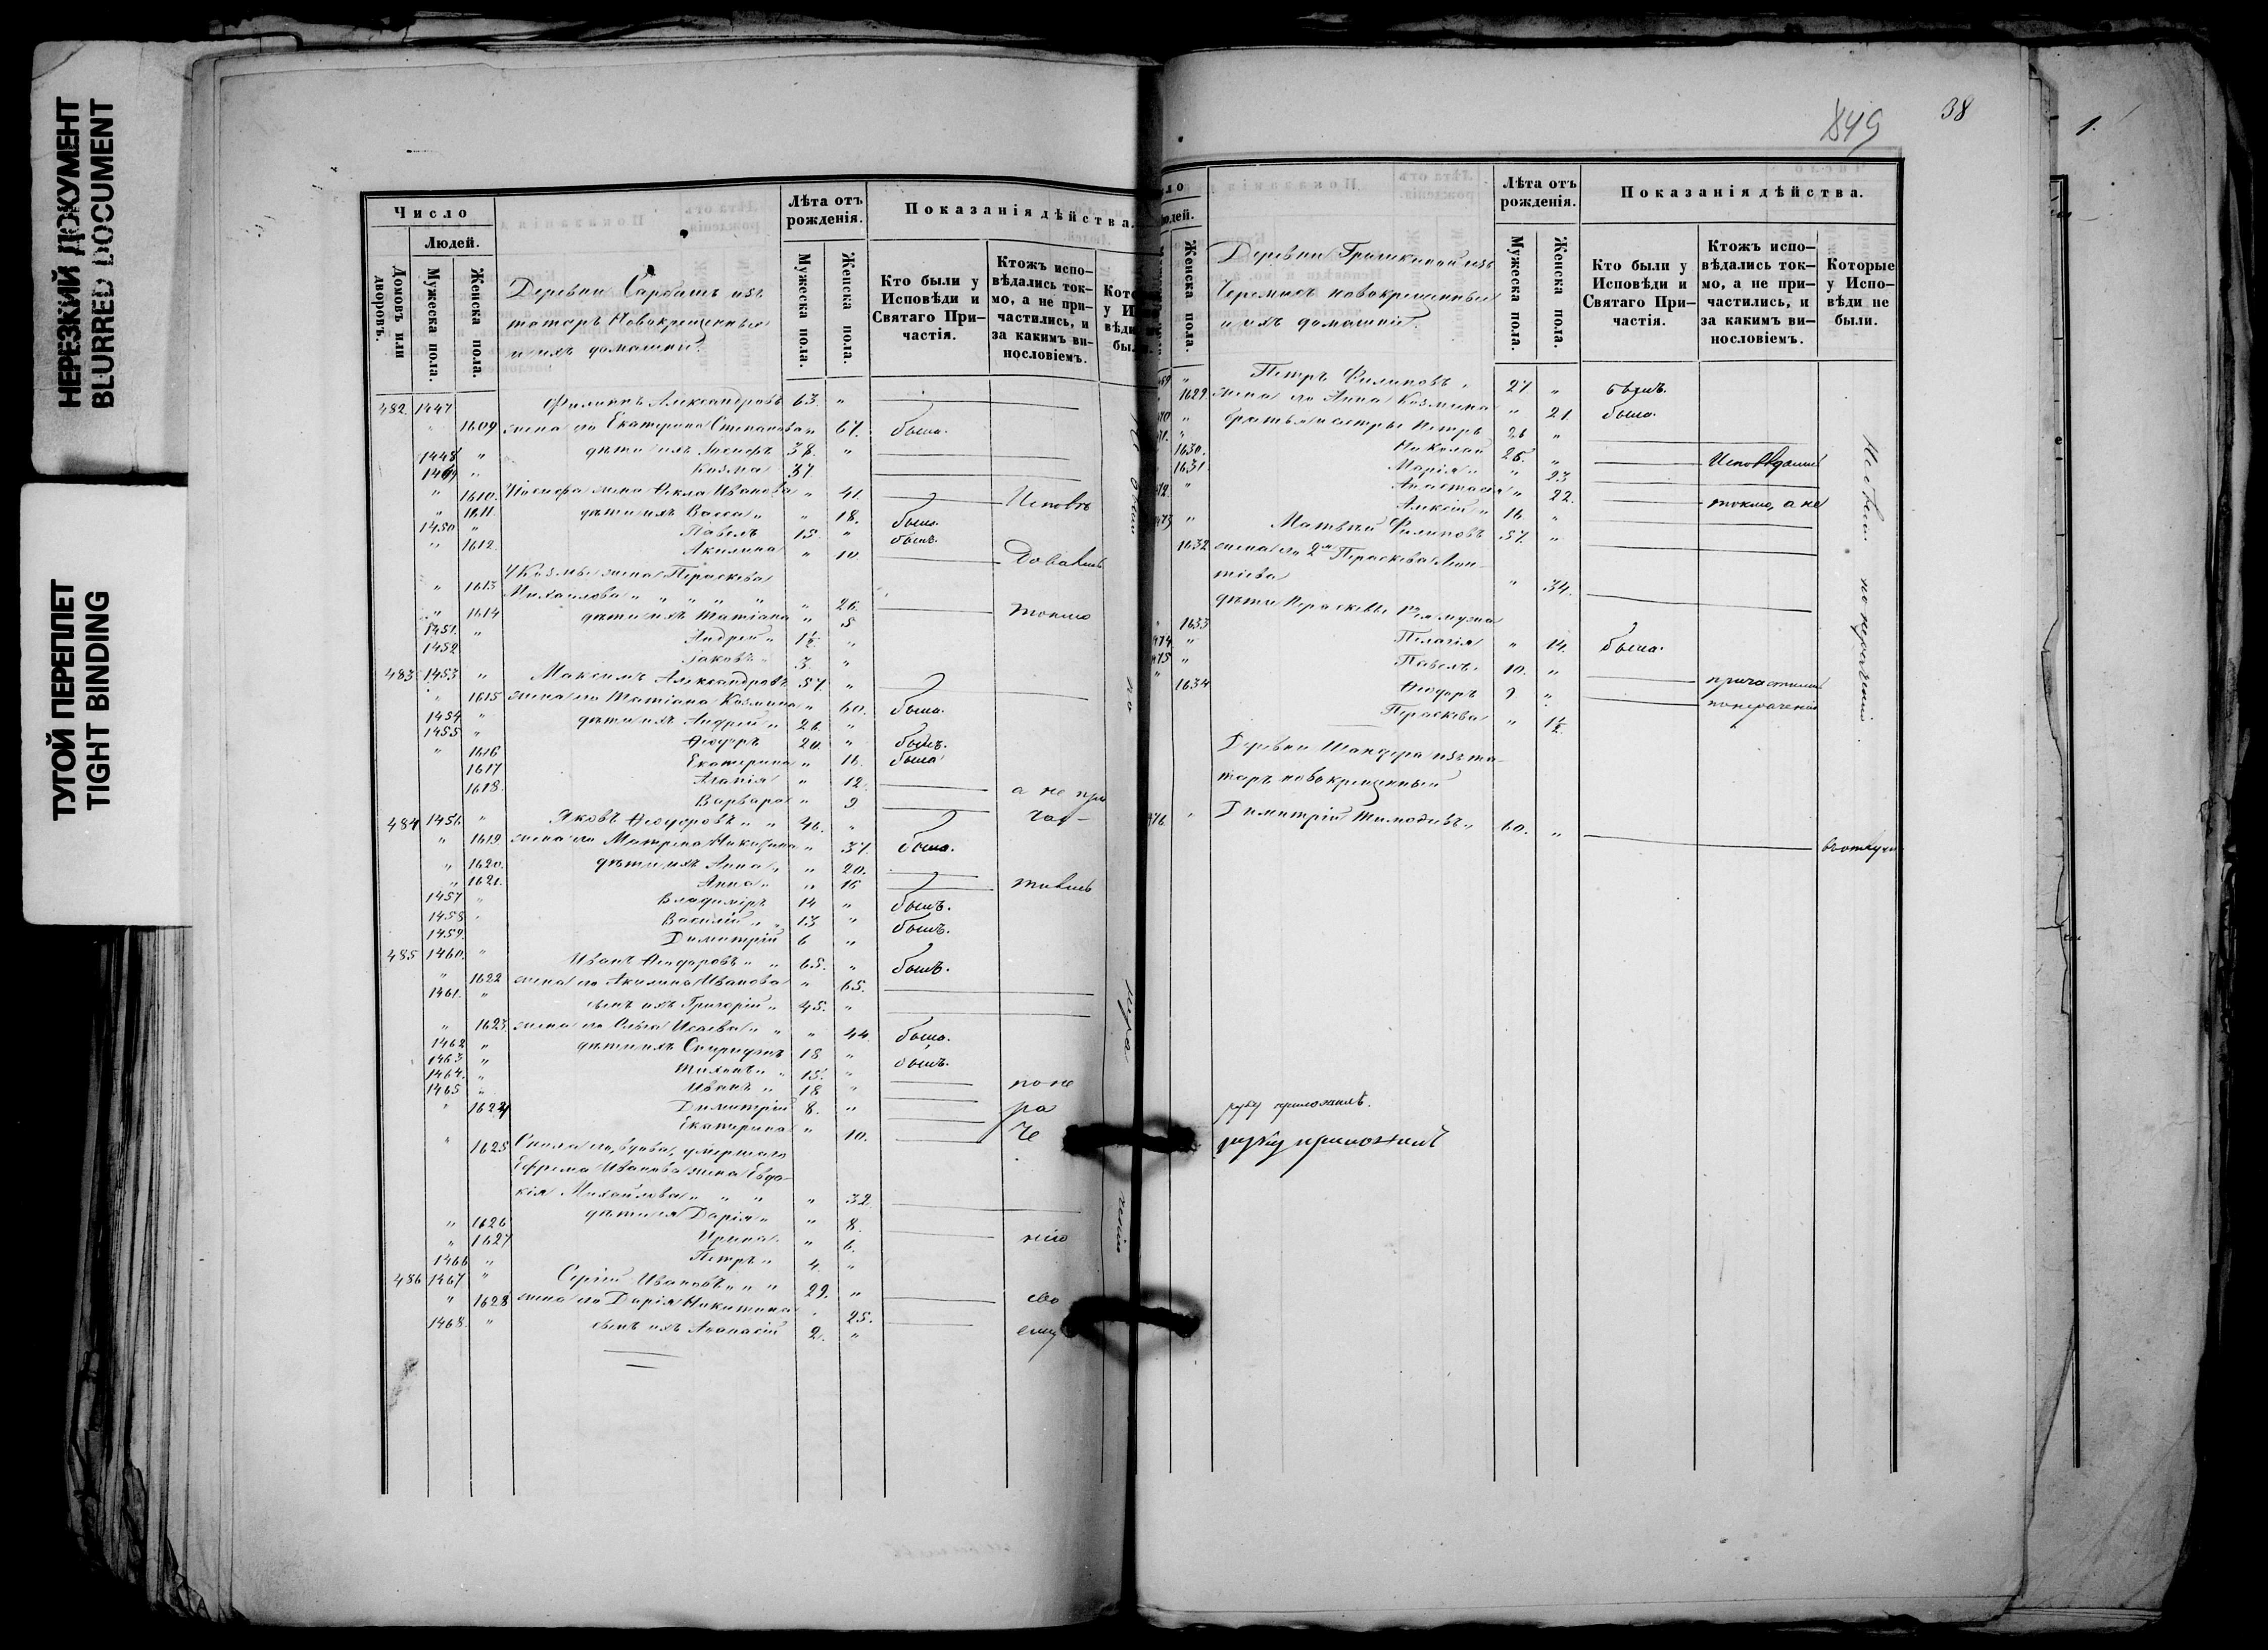 НЕРЕЗКИЙ ДОКУМЕНТ
BLURRED DOCUMENT
ТУГОЙ ПЕРЕПЛЕТ
TIGHT BINDING
Число
Людей.
Домовъ или дворовъ.
Мужеска пола.
Женска пола.
Деревни Сарбашъ изъ
татаръ Новокрещенныя
и ихъ домашніи.
Лѣта отъ рожденія.
Мужеска пола.
Женска пола.
Показанія дѣйства.
Кто были у Исповѣди и Святаго Причастія.
Ктожъ исповѣдались токмо, а не причастились, и за какимъ винословіемъ.
482 1447 Филиппъ Александровъ 63. "
" 1609 жена его Екатерина Степанова " 67. была.
1448 " дѣти ихъ Іосифъ 38. "
1449 " Козма 37
" 1610. Іосифа жена Ѳекла Иванова " 41. Исповѣ
" 1611. дѣти ихъ Васса " " 18. была.
1450 " Павелъ 15 " былъ.
" 1612. Акилина " 10. довались
У Козмы жена Параскева
" 1613 Михаилова " " " " " 26.
" 1614 дѣти ихъ Татіана " 5 токмо
1451. " Андрей " 1½. "
1452 Іаковъ " 3. "
483 1453 " Максимъ Александровъ 57. "
" 1615 жена его Татіана Козмина " 60. была.
1454 " дѣти ихъ Андрей " 26. "
1455 " Ѳеодоръ 20. " былъ.
" 1616 Екатерина " 16. была
1617 Агапія " 12. а не при
1618. Варвара " 9
484 1456. " Яковъ Ѳеодоровъ " " 46. " час-
" 1619 жена его Матрена Никитина " 37. была.
" 1620. дѣти ихъ Анна " " 20.
" 1621. Анна " " 16 тились
1457 " Владиміръ 14 " былъ.
1458 " Василій " 13 " былъ.
1459. Димитрій 6 "
485 1460. " Иванъ Ѳеодоровъ " " 65. " былъ.
" 1622 жена его Акилина Иванова " 65.
1461. " сынъ ихъ Григорій " 45. "
" 1623. жена его Ольга Исаева " " " 44. была.
1462 " дѣти ихъ Спиридонъ 18. " былъ.
1463 " Тихонъ " 15. "
1464. " Иванъ " 18 " по не
1465 " Димитрій 8. " ра
" 1624 Екатерина " 10. че
" 1625
Ефрема Иванова жена Евдо-
кія Михаилова " " " " 32.
" 1626 дѣти ея Дарія " " 8.
" 1627 Ирина " 6. нію
1466 " Петръ " 4. "
486 1467 " Сергій Ивановъ " " " 29. "
" 1628 жена его Дарія Никитина " 25. сво
1468. " сынъ ихъ Аѳанасій 2. " ему
849
38
1.
Женска пола.
Деревни Грашкиной изъ
Черемисъ новокрещенныя
и ихъ домашніи.
Лѣта отъ рожденія.
Мужеска пола.
Женска пола.
Показанія дѣйства.
Кто были у Исповѣди и Святаго Причастія.
Ктожъ исповѣдались токмо, а не причастились, и за какимъ винословіемъ.
Которые у Исповѣди не были.
" Петръ Филиповъ " 27. " былъ.
1629 жена его Анна Козмина " 21 была.
" братья и сестры Петръ 26 "
" Николай 25. "
1630. Марія " " 23 Исповѣдались
1631 Анастасія " 22.
" Алексій " 16. " токмо, а не
" Матвѣй Филиповъ 57. "
1632 жена его 2я Параскева Леон-
тіева " 34.
дѣти Параскевы 1го мужа
1633 Пелагія " 14. была.
" Павелъ " 10. "
" Ѳеодоръ 9 " причастились
1634 Параскева " 1½ по нераченію
Не были по нераченію.
Деревни Шандера изъ та-
таръ новокрещенный
" Димитрій Тимоѳеевъ " 60. " въ отлучкѣ
руку приложилъ.
руку приложилъ